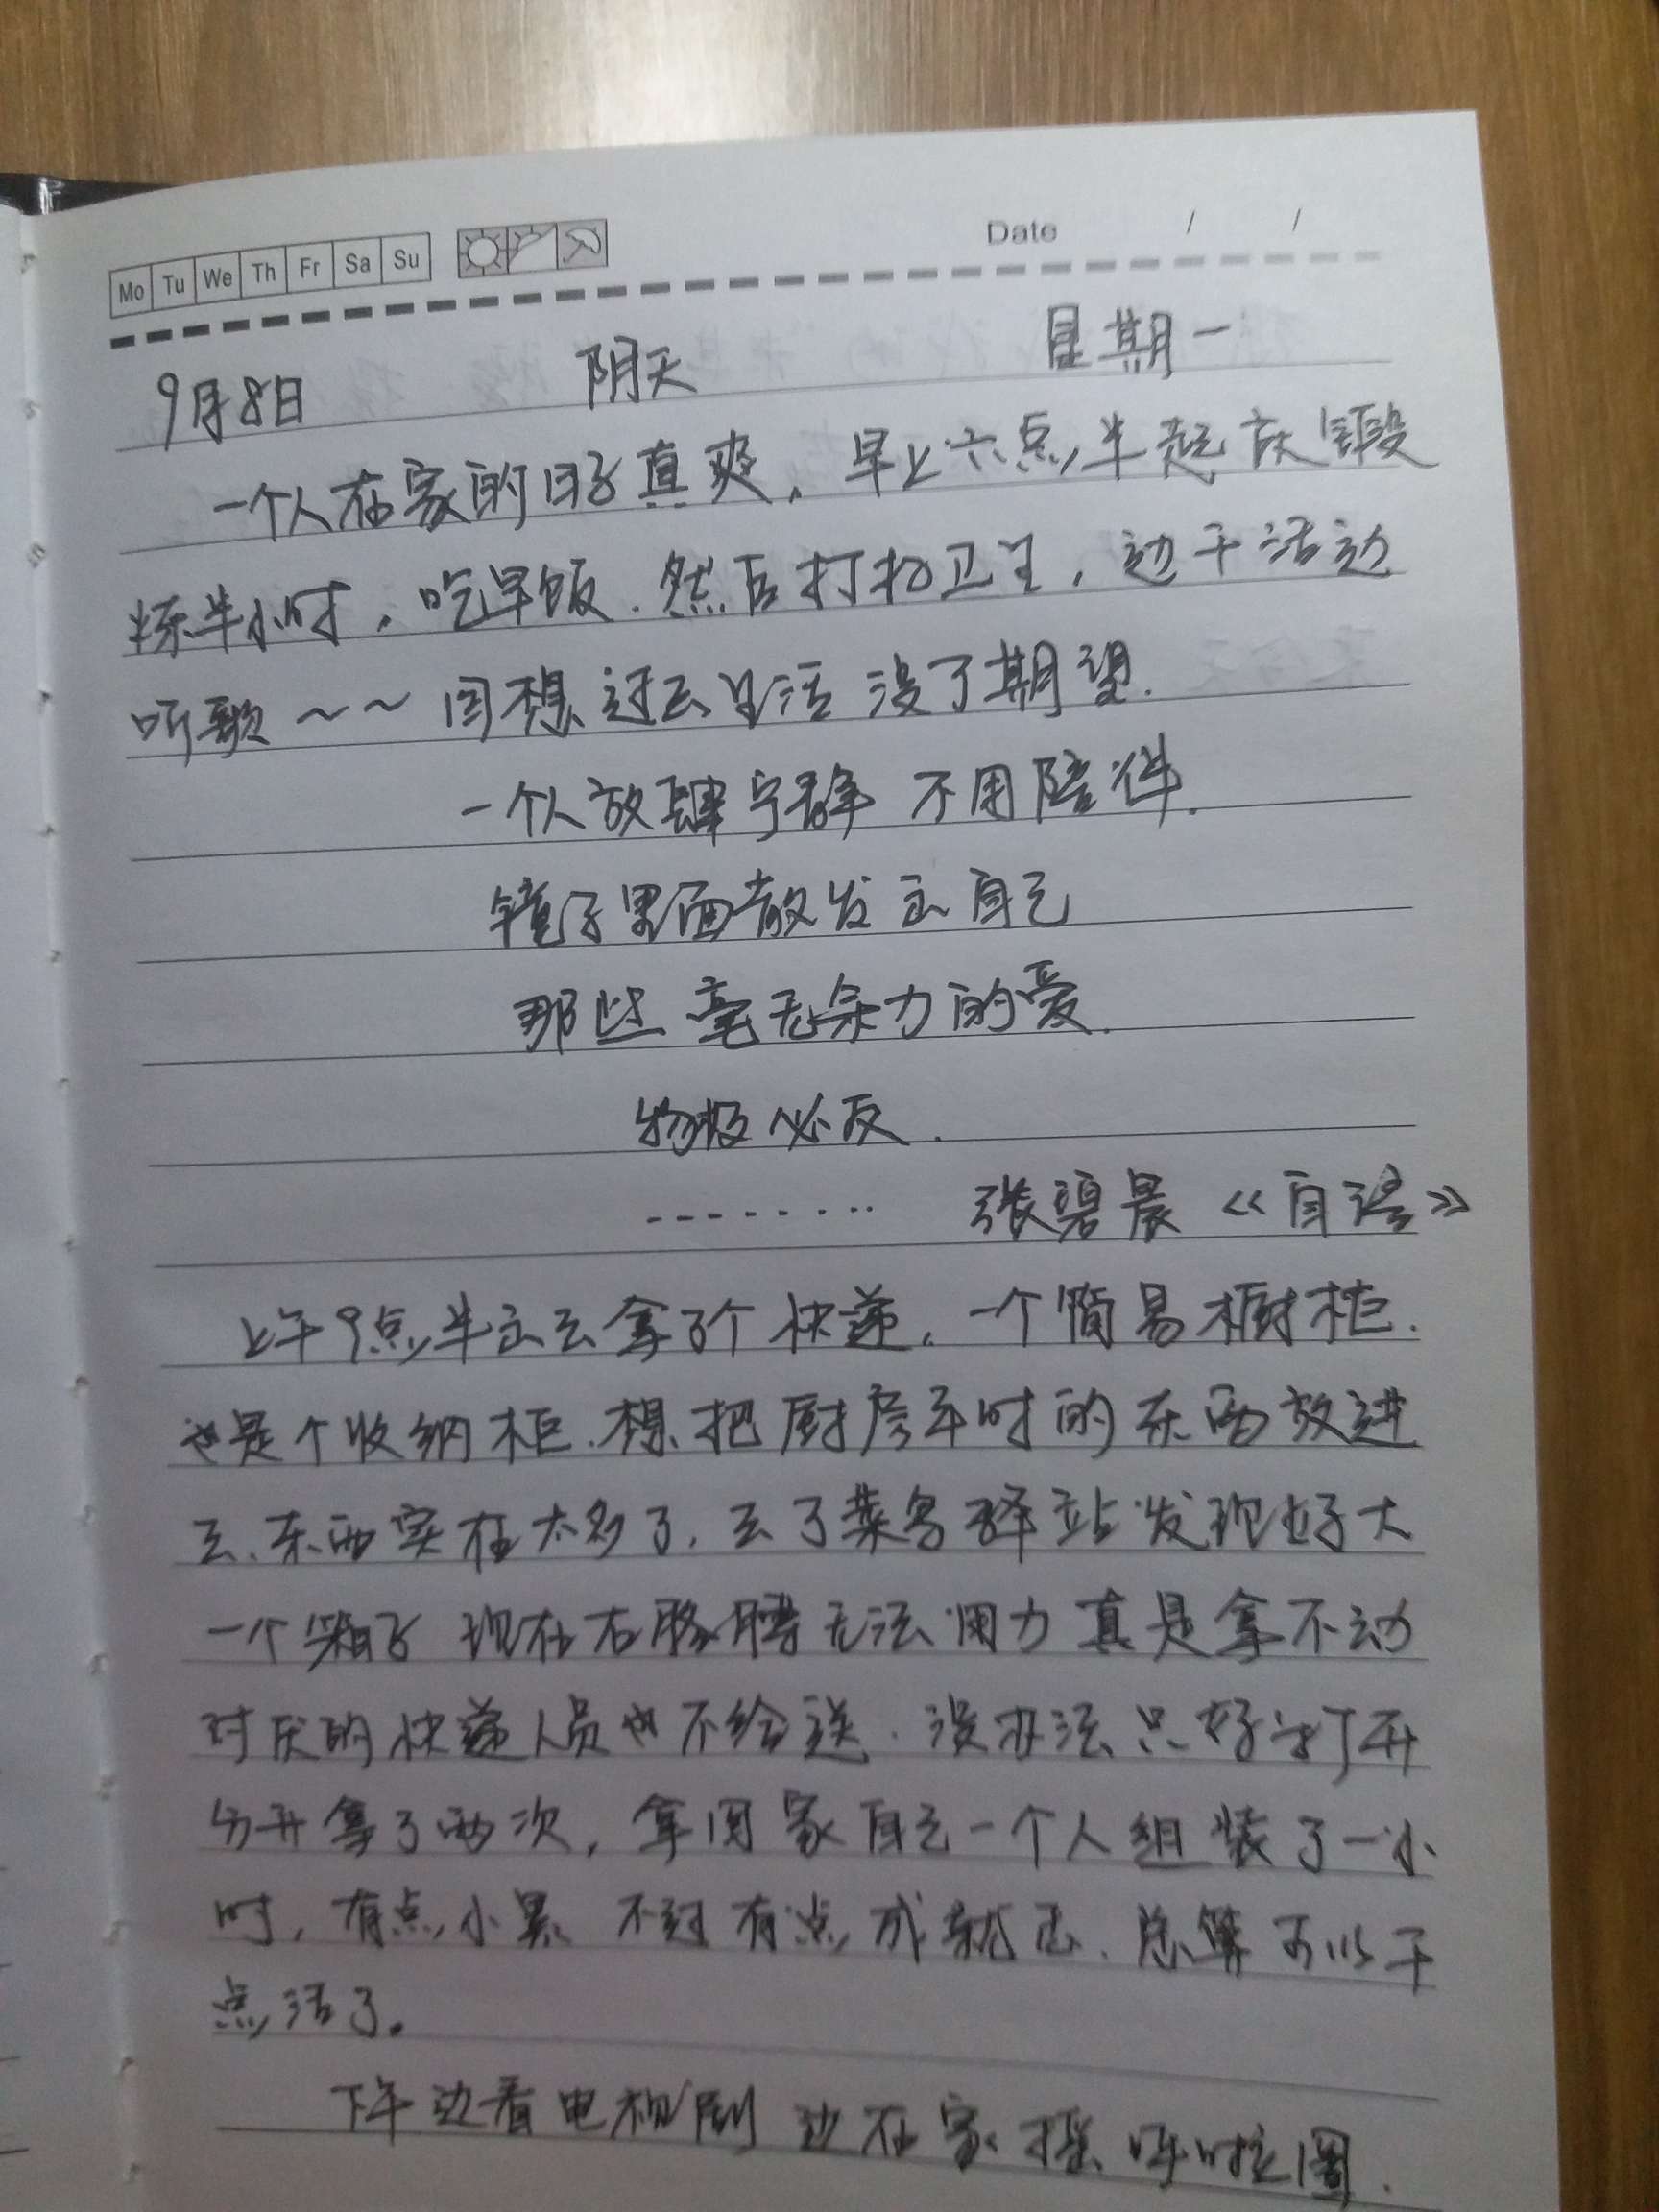 Mo Tu We Th Fr Sa Su Date / /
9月8日 阴天 星期一
一个人在家的日子真爽，早上六点半起床锻
炼半小时，吃早饭.然后打扫卫生，边干活边
听歌～～回想过去生活 没了期望.
一个人放肆宁静 不用陪伴.
镜子里面散发出自己
那些毫无余力的爱.
物极必反.
········ 张碧晨《自谣》
上午9点半出去拿了个快递，一个简易橱柜.
也是个收纳柜.想把厨房平时的东西放进
去.东西实在太多了，去了菜鸟驿站发现好大
一个箱子 现在右胳膊无法用力 真是拿不动
讨厌的快递人员也不给送.没办法只好打开
分开拿了两次，拿回家自己一个人组装了一小
时，有点小累 不过有点成就感.总算可以干
点活了。
下午边看电视剧 边在家摇呼啦圈.